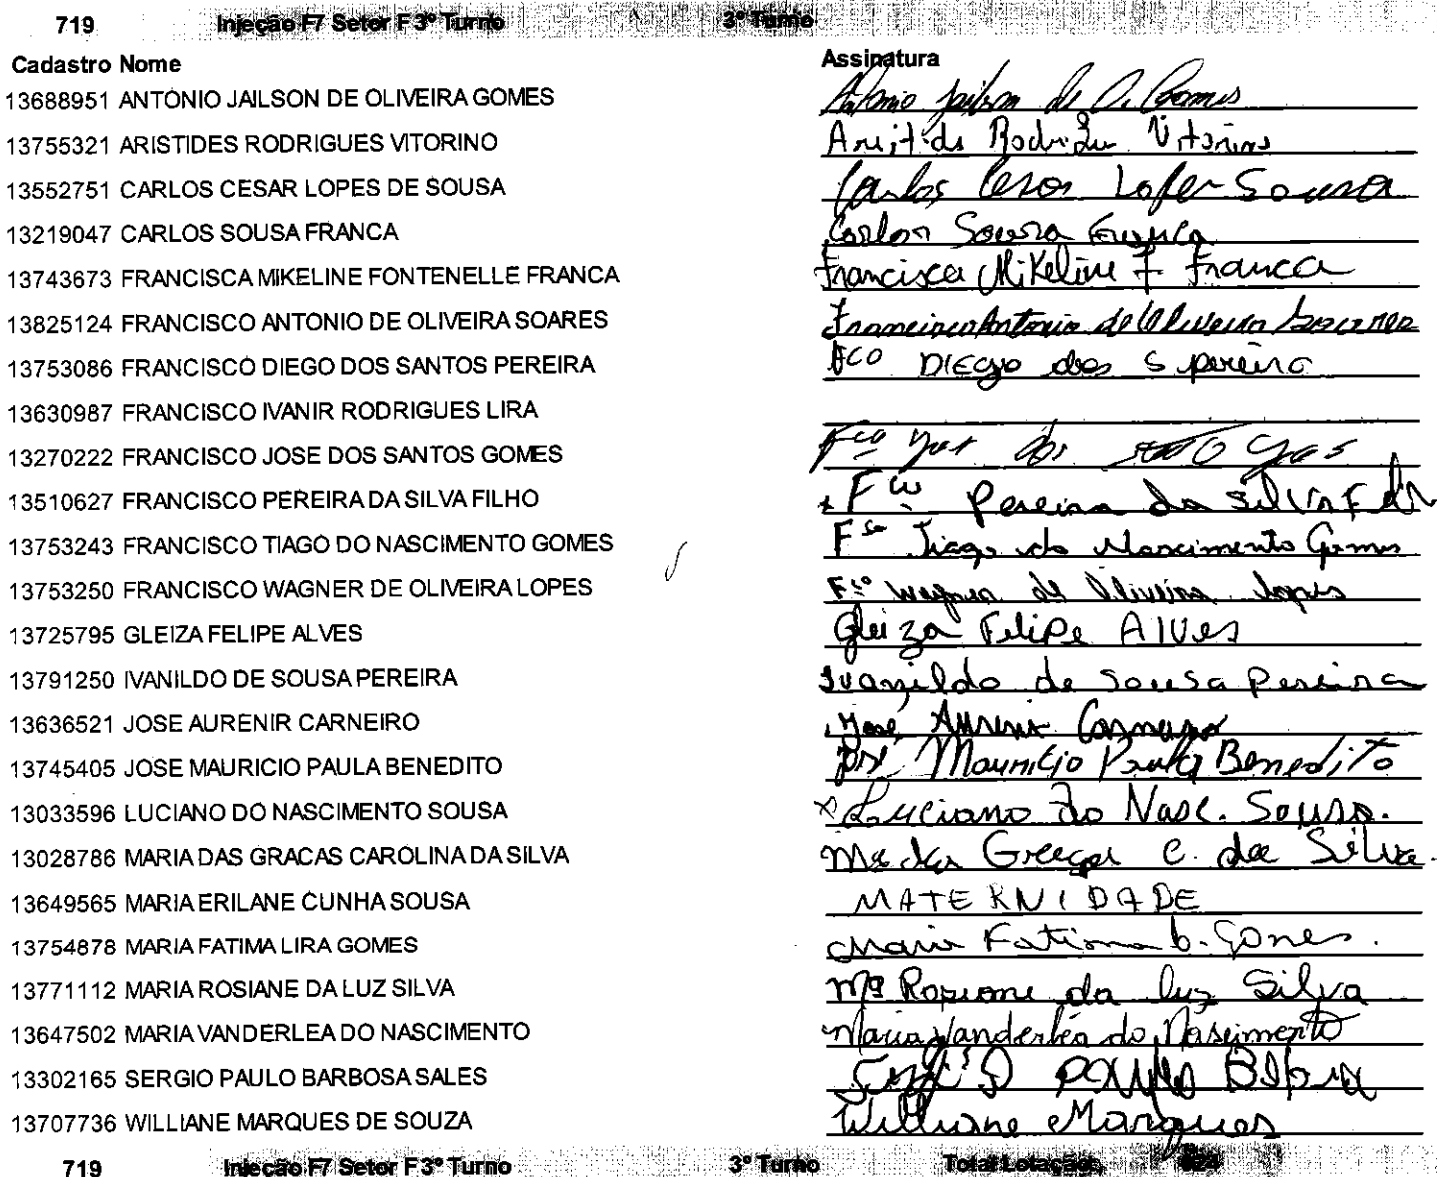 719 Injeção F7 Setor F 3º Turno 3º Turno
Cadastro Nome Assinatura
13688951 ANTONIO JAILSON DE OLIVEIRA GOMES Antonio Jailson de O. Gomes
13755321 ARISTIDES RODRIGUES VITORINO Vitorino
13552751 CARLOS CESAR LOPES DE SOUSA Carlos Cesar Lopes Sousa
13219047 CARLOS SOUSA FRANCA Carlos Sousa
13743673 FRANCISCA MIKELINE FONTENELLE FRANCA Francisca Mikeline F. Franca
13825124 FRANCISCO ANTONIO DE OLIVEIRA SOARES Francisco Antonio de Oliveira Soares
13753086 FRANCISCO DIEGO DOS SANTOS PEREIRA Fco DIEGO dos S pereira
13630987 FRANCISCO IVANIR RODRIGUES LIRA
13270222 FRANCISCO JOSE DOS SANTOS GOMES Fco
13510627 FRANCISCO PEREIRA DA SILVA FILHO Fco Pereira da Silva
13753243 FRANCISCO TIAGO DO NASCIMENTO GOMES Fco Tiago do Nascimento Gomes
13753250 FRANCISCO WAGNER DE OLIVEIRA LOPES Fco Wagner de Oliveira Lopes
13725795 GLEIZA FELIPE ALVES Gleiza Felipe Alves
13791250 IVANILDO DE SOUSA PEREIRA Ivanildo de Sousa Pereira
13636521 JOSE AURENIR CARNEIRO José Aurenir Carneiro
13745405 JOSE MAURICIO PAULA BENEDITO José Mauricio Paula Benedito
13033596 LUCIANO DO NASCIMENTO SOUSA x Luciano do Nasc. Sousa.
13028786 MARIA DAS GRACAS CAROLINA DA SILVA Mª das Graças C. da Silva.
13649565 MARIA ERILANE CUNHA SOUSA MATERNIDADE
13754878 MARIA FATIMA LIRA GOMES Maria Fatima L. Gomes.
13771112 MARIA ROSIANE DA LUZ SILVA Mª Rosiane da luz Silva
13647502 MARIA VANDERLEA DO NASCIMENTO Maria Vanderléa do Nascimento
13302165 SERGIO PAULO BARBOSA SALES
13707736 WILLIANE MARQUES DE SOUZA Williane Marques
719 Injeção F7 Setor F 3º Turno 3º Turno Total Lotação: